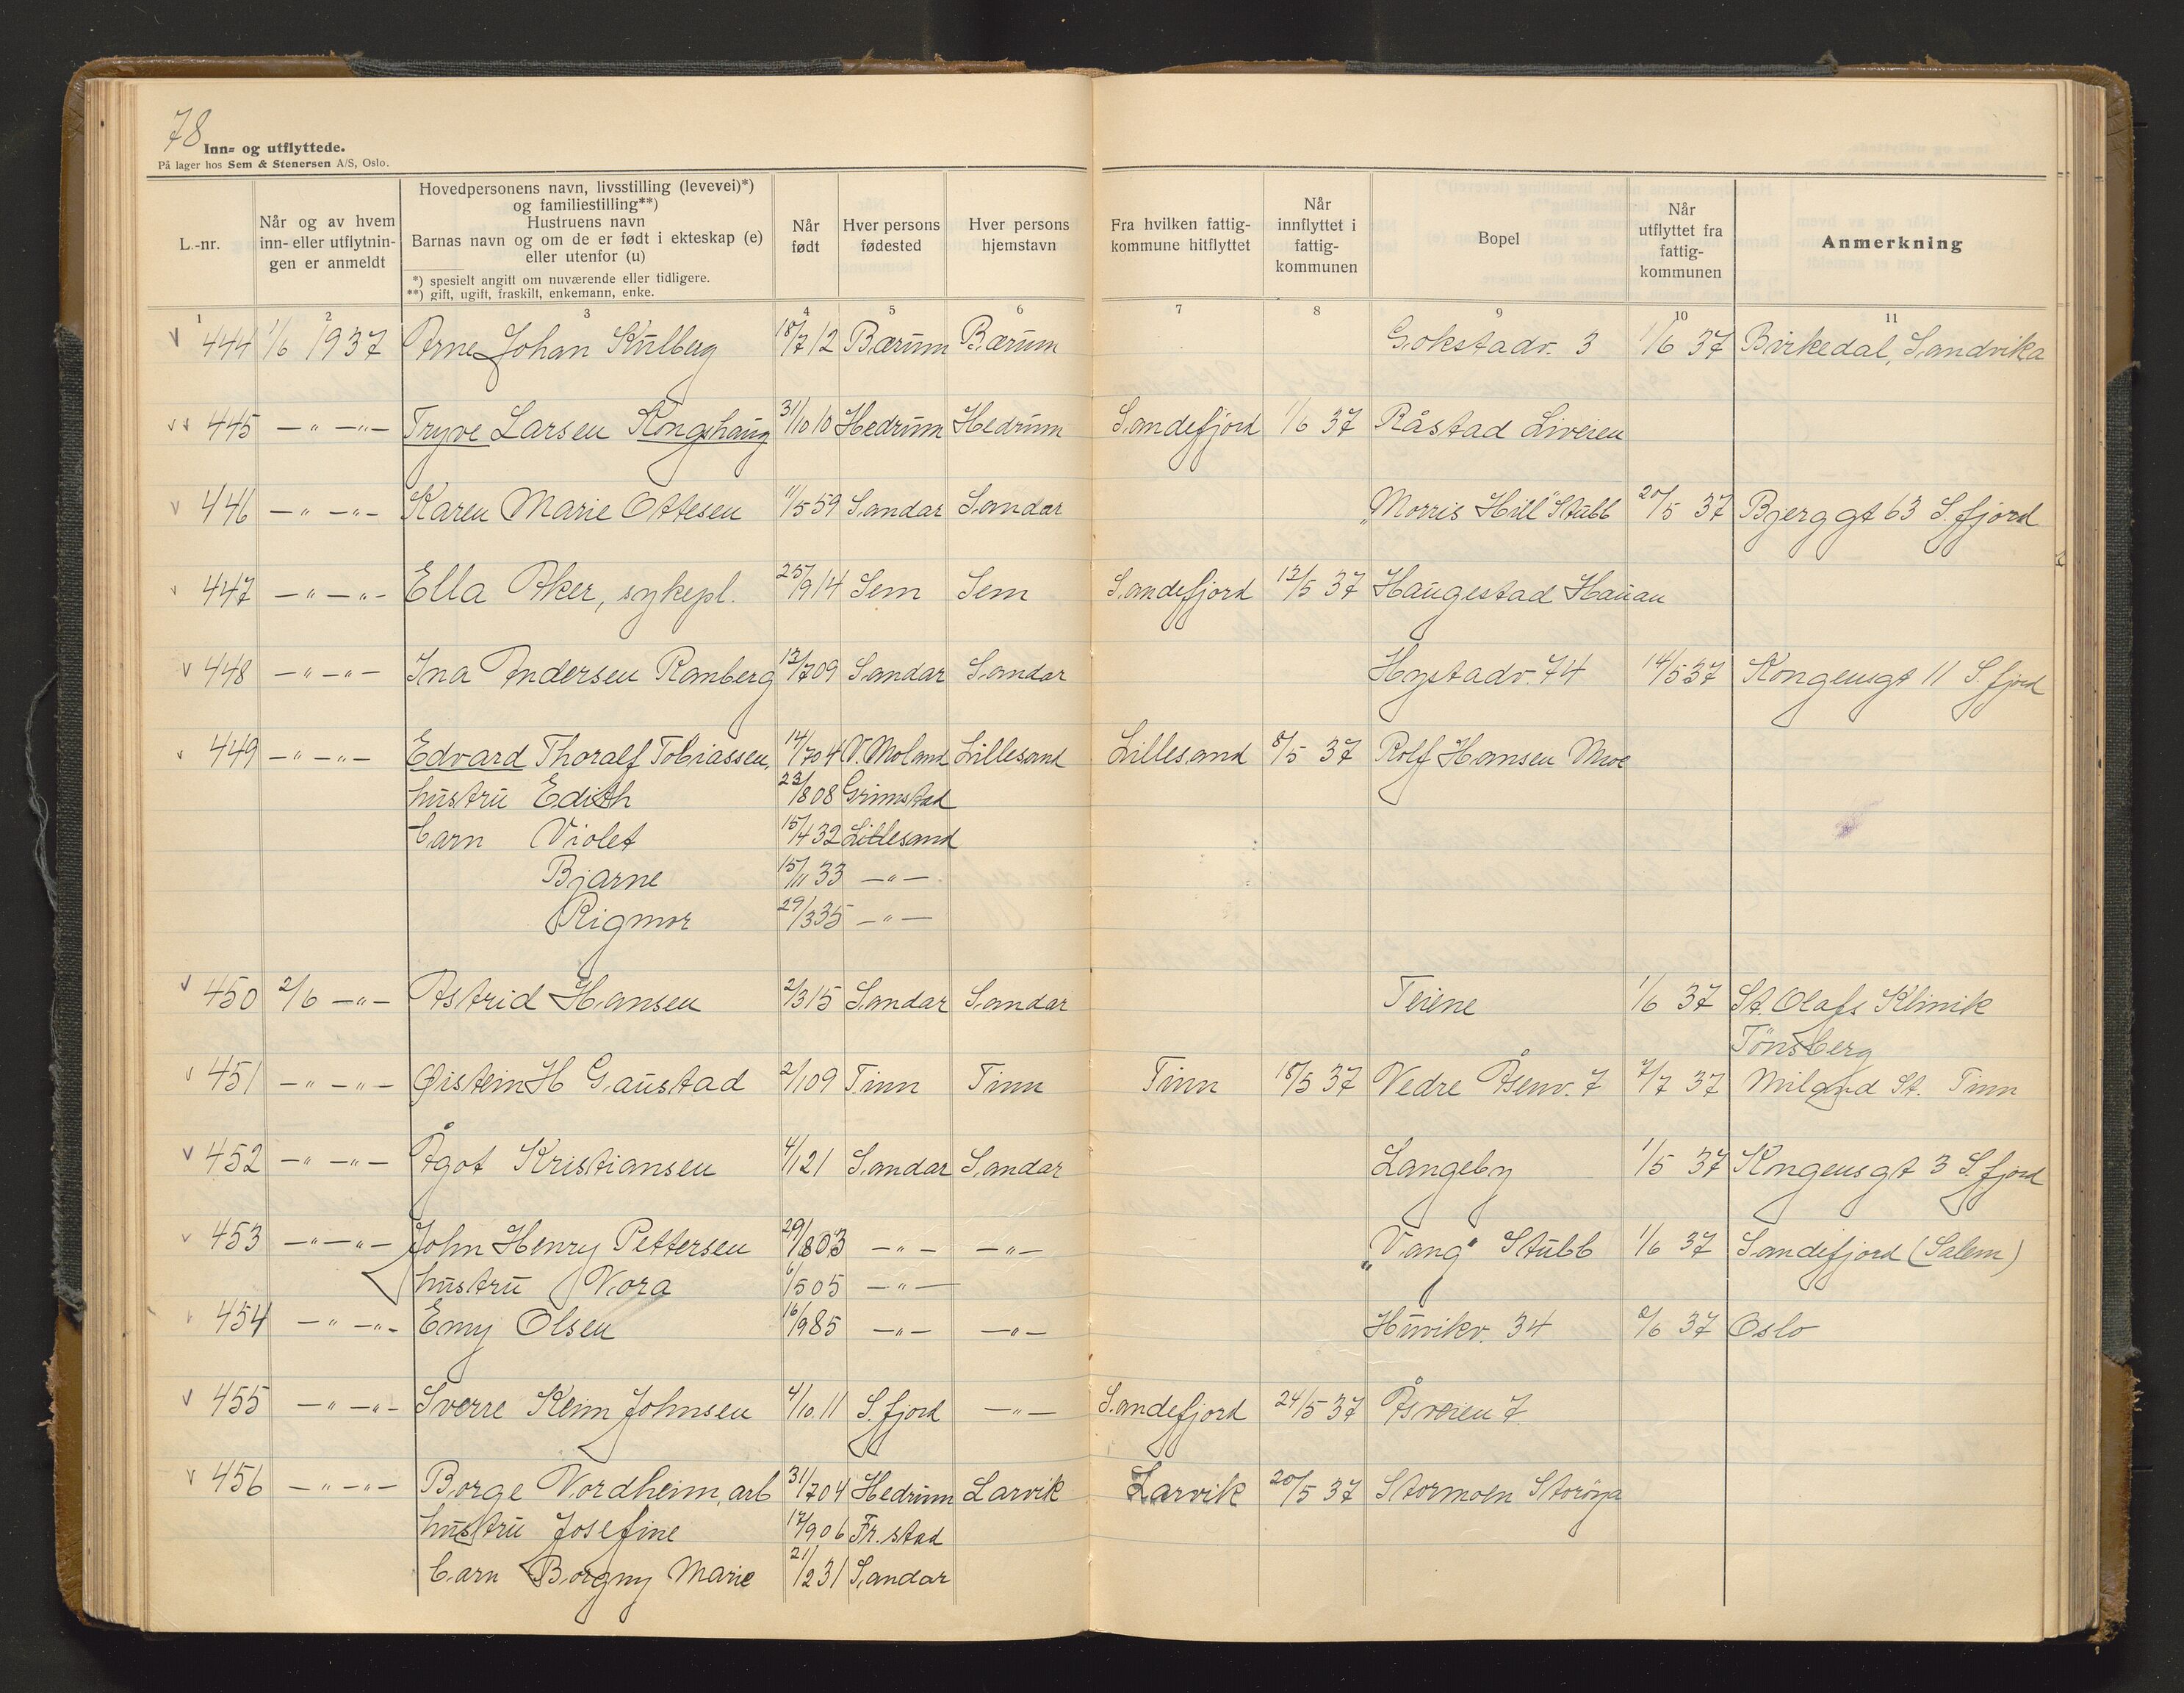 78
Inn- og utflyttede.
På lager hos Sem & Stenersen A/S, Oslo.
L.-nr.
Når og av hvem inn- eller utflytningen er anmeldt
Hovedpersonens navn, livsstilling (levevei)*)
og familiestilling**)
Hustruens navn
Barnas navn og om de er født i ekteskap (e)
eller utenfor (u)
*) spesielt angitt om nuværende eller tidligere.
**) gift, ugift, fraskilt, enkemann, enke.
Når født
Hver persons fødested
Hver persons hjemstavn
Fra hvilken fattigkommune hitflyttet
Når innflyttet i fattigkommunen
Bopel
Når utflyttet fra fattigkommunen
Anmerkning
1 2 3 4 5 6 7 8 9 10 11
444 1/6 1937 Arne Johan Kulberg 18/7 12 Bærum Bærum Gokstadv. 3 1/6 37 Birkedal, Sandvika
445 —"— —"— Tryve Larsen Kongshaug 31/10 10 Hedrum Hedrum Sandefjord 1/6 37 Råstad Liveien
446 —"— —"— Karen Marie Ottesen 11/5 59 Sandar Sandar „Morris Hill" Stubb 20/5 37 Bjerggt 63 S.fjord
447 —"— —"— Ella Aker, sykepl. 25/9 14 Sem Sem Sandefjord 12/5 37 Haugestad Hauan
448 —"— —"— Ina Andersen Ramberg 12/7 09 Sandar Sandar Hystadv. 74 14/5 37 Kongensgt 11 S.fjord
449 —"— —"— Edvard Thoralf Tobiassen, 14/7 04 V. Moland Lillesand Lillesand 8/5 37 Rolf Hansen Moe
hustru Edith 23/8 08 Grimstad
barn Violet 15/4 32 Lillesand
Bjarne 15/11 33 —"—
Rigmor 29/3 35 —"—
450 2/6 —"— Astrid Hansen 2/3 15 Sandar Sandar Teiene 1/6 37 St. Olafs Klinik
Tönsberg
451 —"— —"— Øistein H Gaustad 2/1 09 Tinn Tinn Tinn 18/5 37 Nedre Åsenv. 7 7/7 37 Miland St. Tinn
452 —"— —"— Ågot Kristiansen 4/1 21 Sandar Sandar Langeby 1/5 37 Kongensgt 3 S.fjord
453 —"— —"— John Henry Pettersen 29/8 03 —"— —"— „Vang" Stubb 1/6 37 Sandefjord (Salem)
hustru Nora 6/5 05 —"—
454 —"— —"— Emy Olsen 16/9 85 —"— —"— Huvikv. 34 2/6 37 Oslo
455 —"— —"— Sverre Keim Johnsen 4/10. 11 S.fjord —"— Sandefjord 24/5 37 Åsveien 7
456 —"— —"— Borge Nordheim, arb 31/7 04 Hedrum Larvik Larvik 20/5 37 Stormoen Storøya
hustru Josefine 17/9 06 Fr.stad
barn Borgny Marie 21/2 31 Sandar